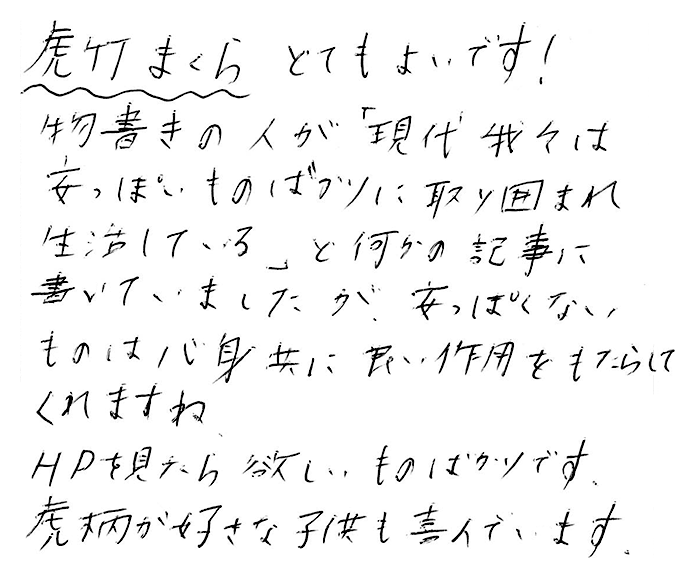 虎竹まくら とてもよいです!
物書きの人が「現代 我々は
安っぽいものばかりに取り囲まれ
生活している」と何かの記事に
書いていましたが、安っぽくない
ものは心身共に良い作用をもたらして
くれますね
HPを見たら欲しいものばかりです、
虎柄が好きな子供も喜んでいます、